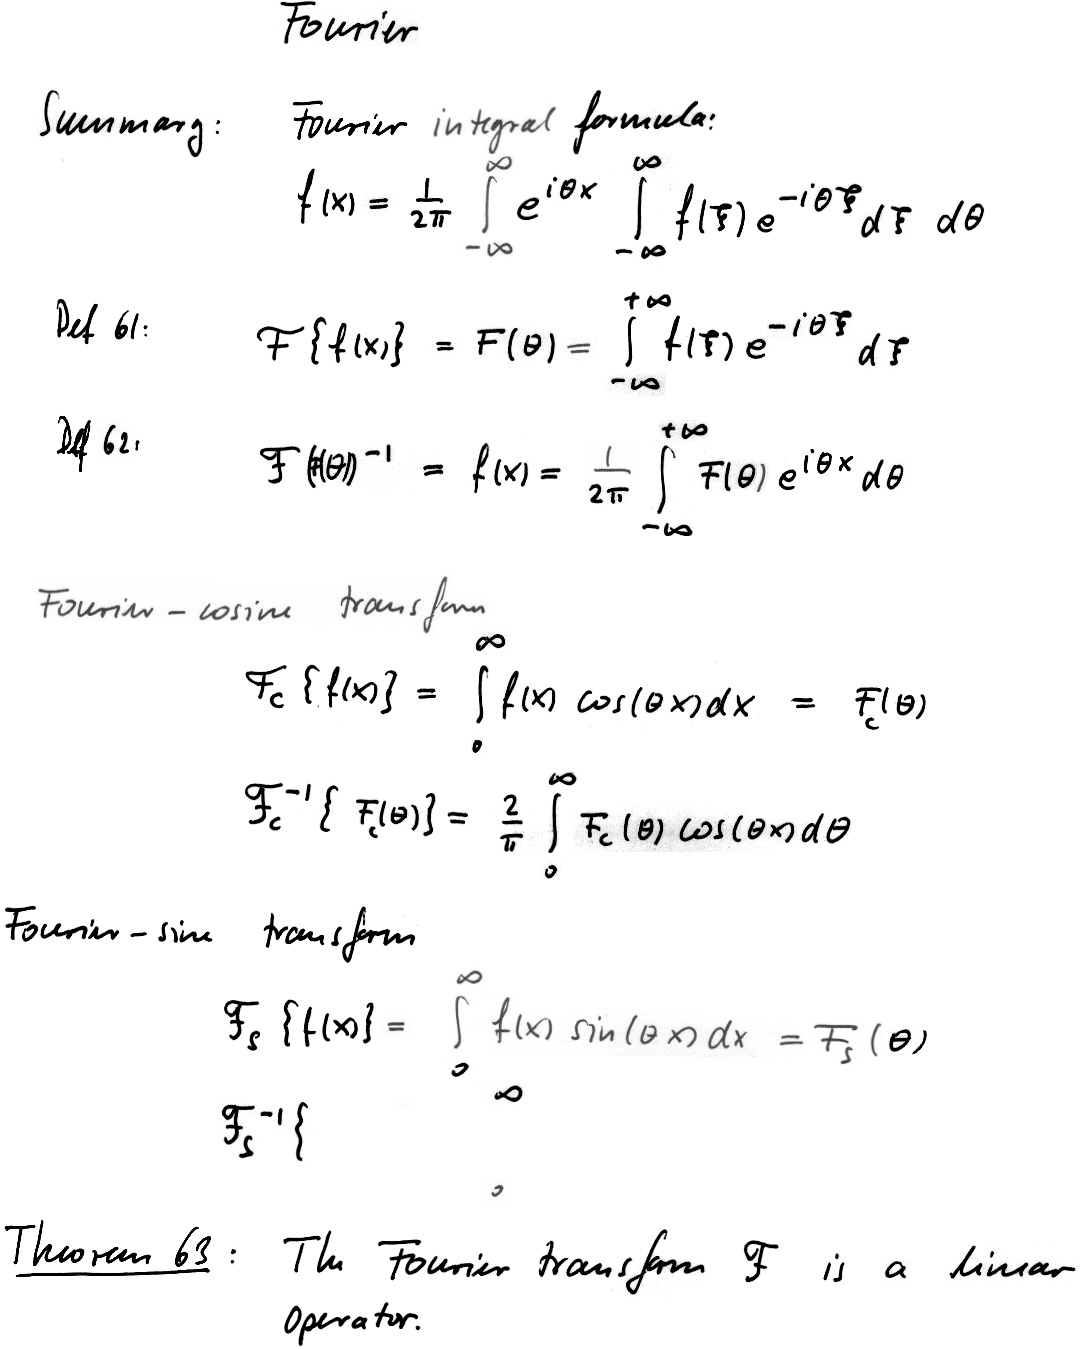 Fourier
Summary: Fourier integral formula:
f(x) = 1/2π ∫_{-∞}^{∞} e^{iθx} ∫_{-∞}^{∞} f(ξ) e^{-iθξ} dξ dθ
Def 61: ℱ{f(x)} = F(θ) = ∫_{-∞}^{+∞} f(ξ) e^{-iθξ} dξ
Def 62: ℱ(F(θ))^{-1} = f(x) = 1/2π ∫_{-∞}^{+∞} F(θ) e^{iθx} dθ
Fourier - cosine transform
ℱ_c {f(x)} = ∫_0^∞ f(x) cos(θx) dx = F_c(θ)
ℱ_c^{-1} { F_c(θ)} = 2/π ∫_0^∞ F_c(θ) cos(θx) dθ
Fourier - sine transform
ℱ_s {f(x)} = ∫_0^∞ f(x) sin(θx) dx = F_s(θ)
ℱ_s^{-1} { ∞ 0
Theorem 63: The Fourier transform ℱ is a linear
operator.